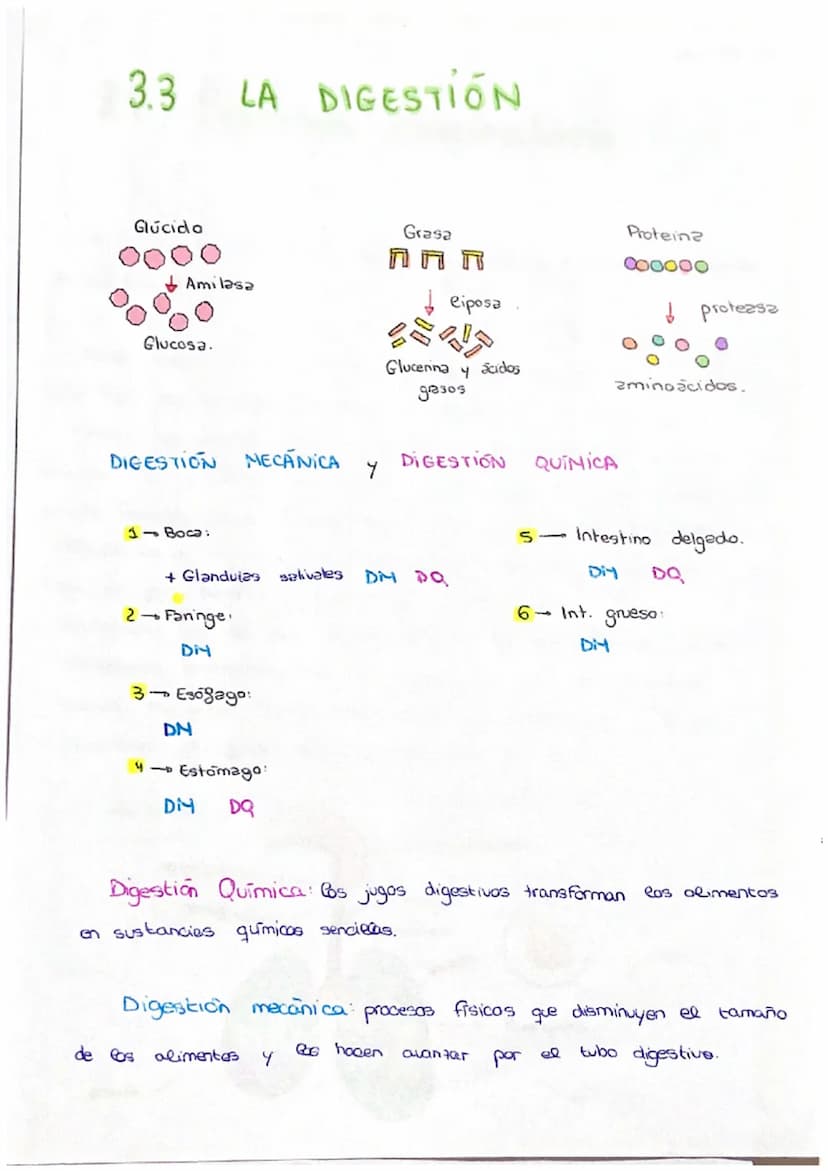 3.3 LA DIGESTIÓN
Glúcido
Amilasa
Glucosa.
Grasa
liposa
Glucerina y ácidos
grasos
Proteina
proteasa
aminoácidos.
DIGESTIÓN MECÁNICA y DIGESTIÓN QUÍMICA
1 → Boca:
+ Glandulas salivales DM DQ
2 → Faringe.
DM
3 → Esófago:
DM
4 → Estómago:
DM DQ
5 → Intestino delgado.
DM DQ
6 → Int. grueso:
DM
Digestión Química: los jugos digestivos transforman los alimentos
en sustancias químicas sencillas.
Digestión mecánica: procesos físicos que disminuyen el tamaño
de los alimentos y los hacen avanzar por el tubo digestivo.